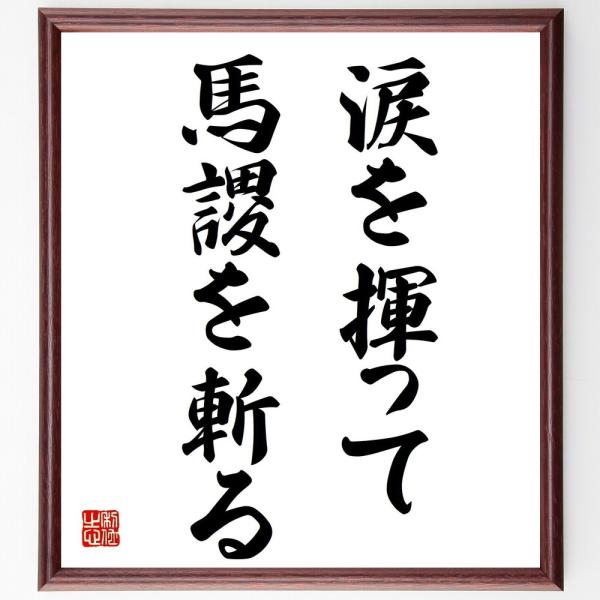 涙を揮って
馬謖を斬る